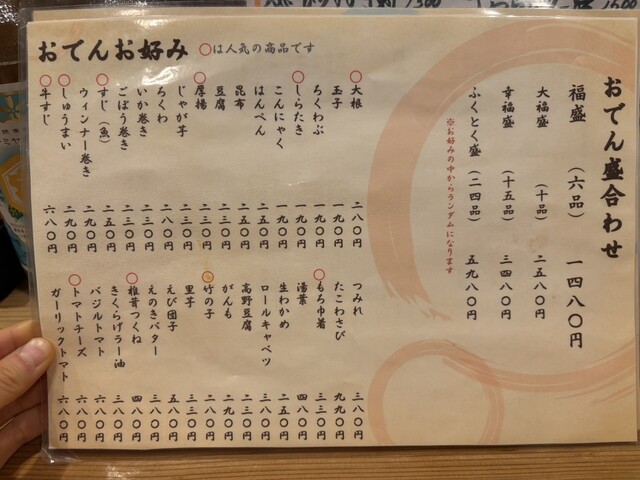 おでん盛合わせ
福盛 (六品) 一四八〇円
大福盛 (十品) 二五八〇円
幸福盛 (十五品) 三四八〇円
ふくとく盛 (二四品) 五九八〇円
※お好みの中からランダムになります
おでんお好み ○は人気の商品です
○大根 二八〇円
玉子 一九〇円
ちくわぶ 一九〇円
○しらたき 一九〇円
こんにゃく 一九〇円
はんぺん 二五〇円
昆布 二五〇円
豆腐 二三〇円
○厚揚 二三〇円
じゃが芋 二三〇円
ちくわ 二八〇円
いか巻き 二三〇円
ごぼう巻き 二三〇円
○すじ(魚) 二五〇円
ウィンナー巻き 二九〇円
○しゅうまい 二九〇円
○牛すじ 六八〇円
つみれ 三八〇円
たこわさび 九九〇円
○もち巾着 三三〇円
湯葉 四八〇円
生わかめ 二五〇円
ロールキャベツ 三八〇円
高野豆腐 二三〇円
がんも 二九〇円
○竹の子 二八〇円
里芋 三三〇円
えび団子 五八〇円
えのきバター 三八〇円
○椎茸つくね 四八〇円
きくらげラー油 三八〇円
バジルトマト 六八〇円
○トマトチーズ 六八〇円
ガーリックトマト 六八〇円